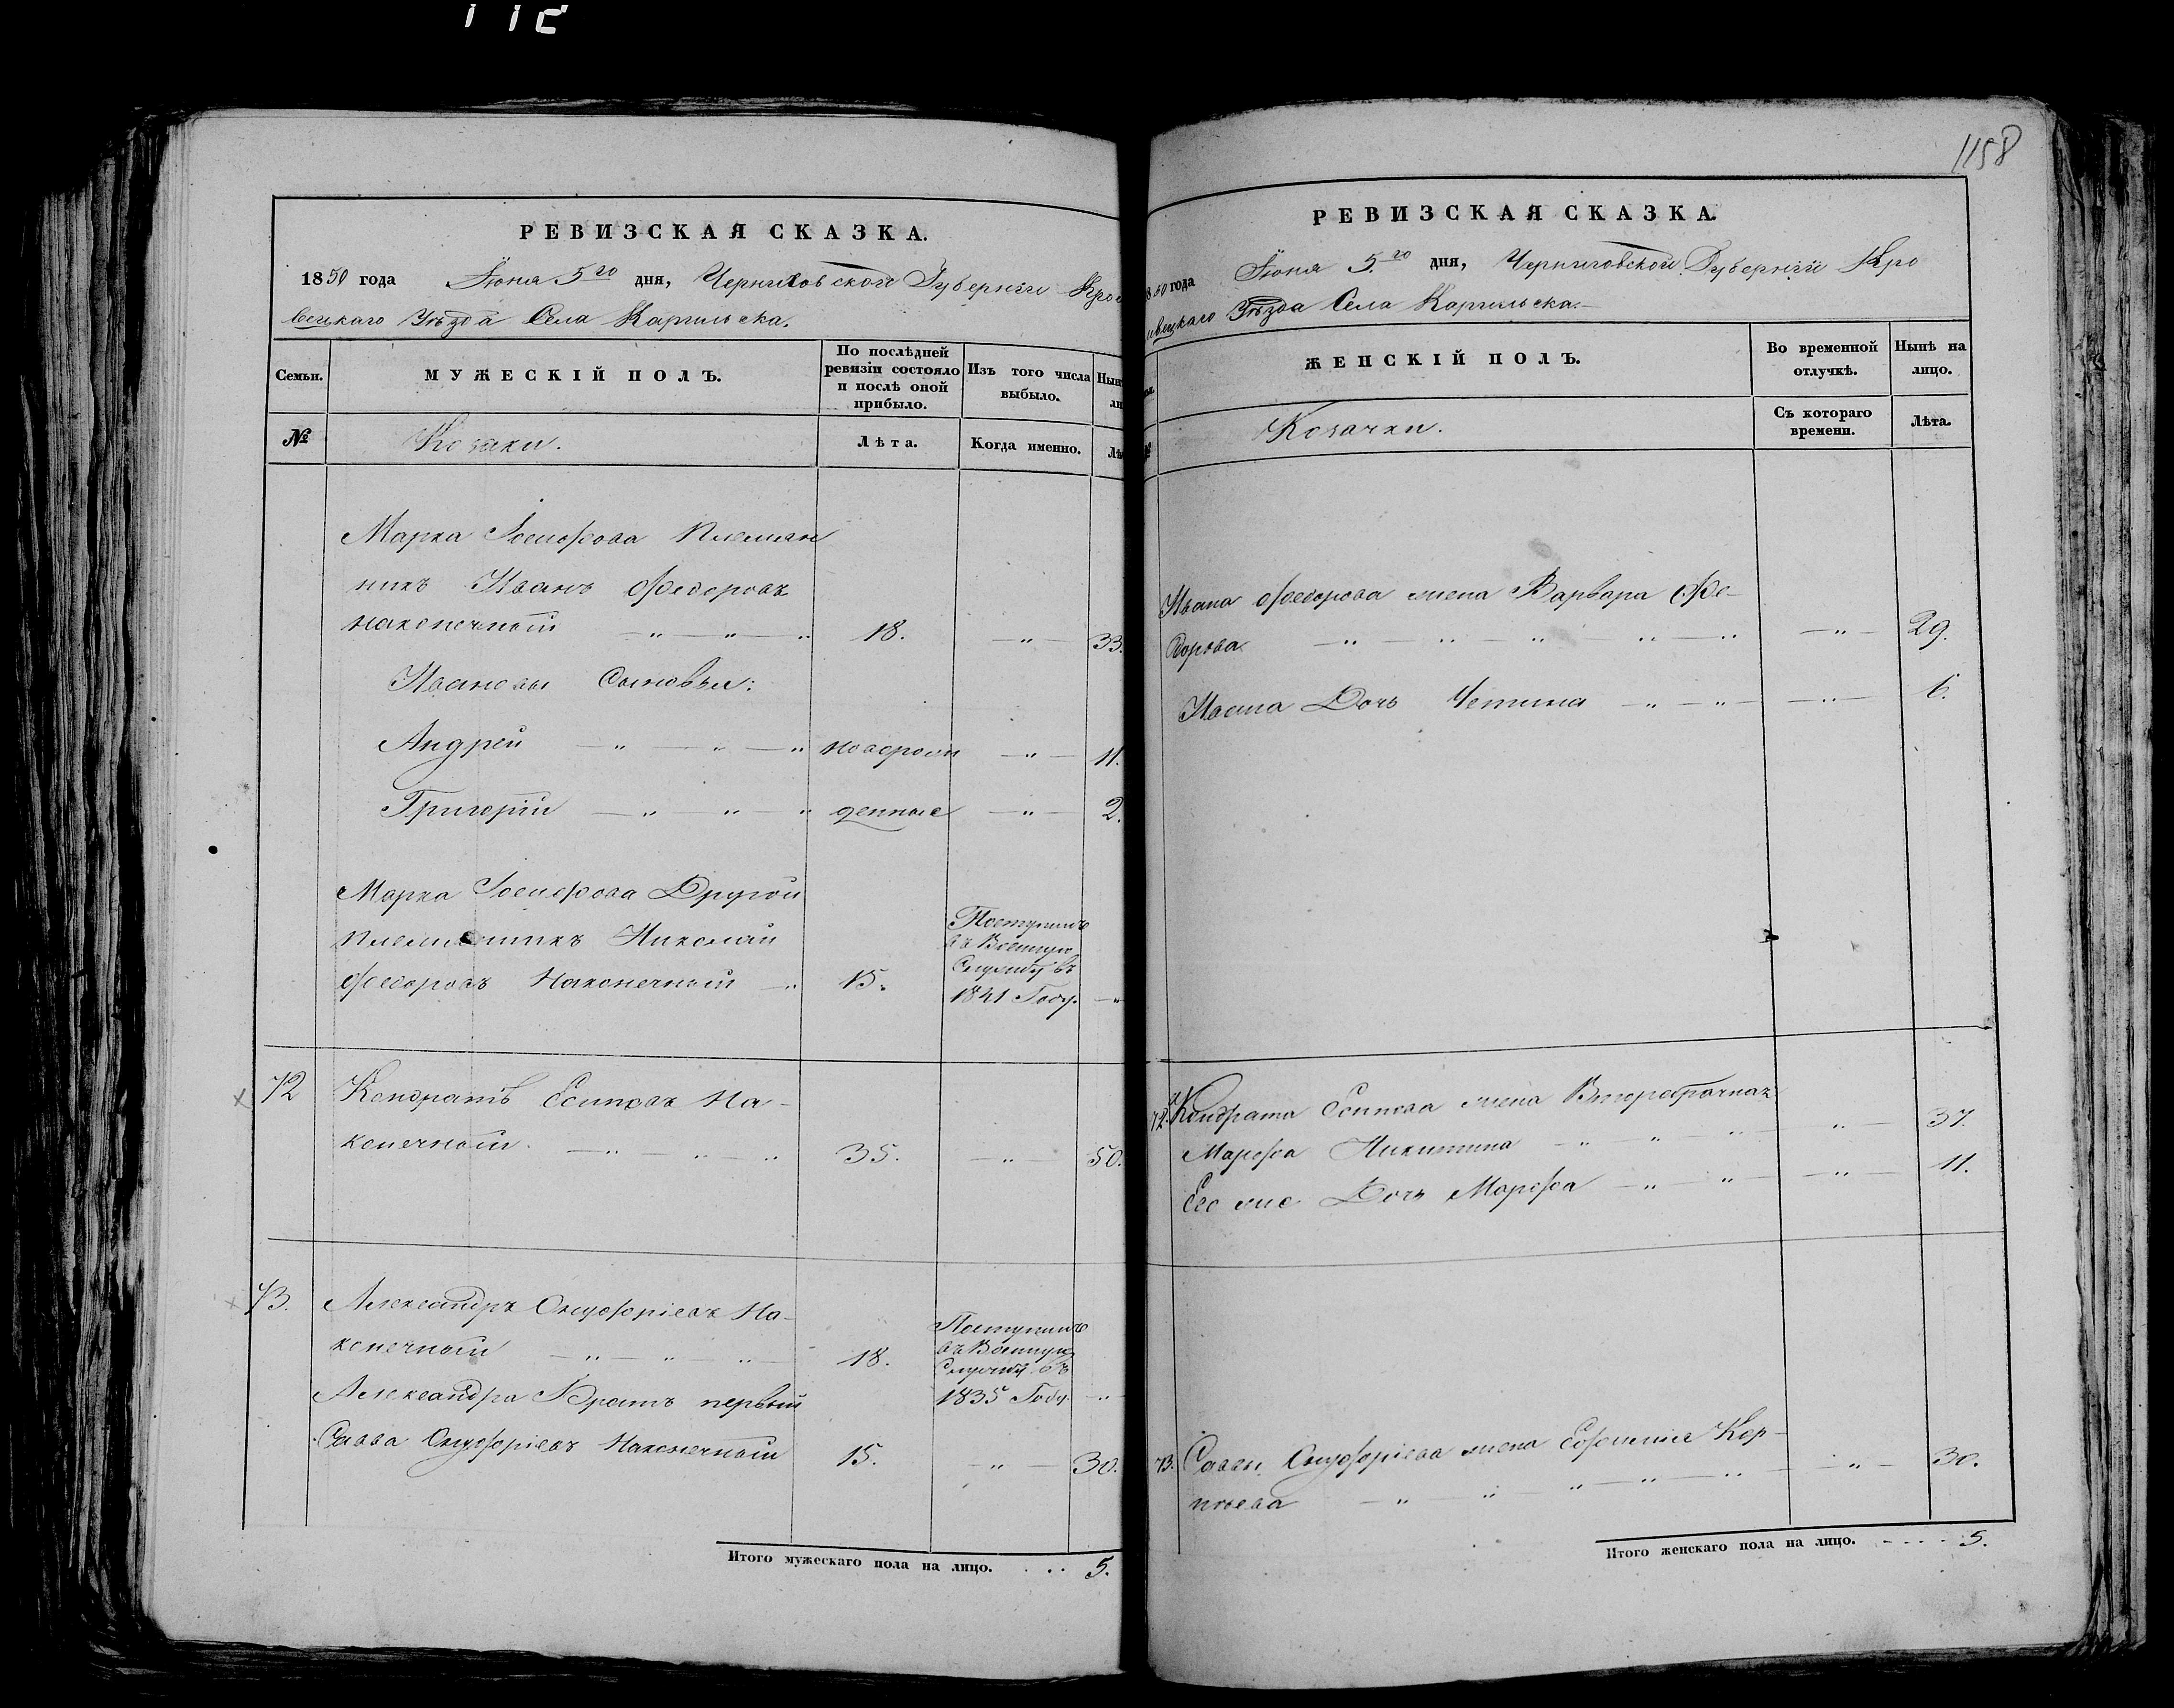 1158
РЕВИЗСКАЯ СКАЗКА.
1850 года Июня 5го дня, Черниговской Губерніи Кроле
вецкаго Уѣзда Села Каргильска.
Семьи.
МУЖЕСКІЙ ПОЛЪ.
По послѣдней
ревизіи состояло
и послѣ оной
прибыло.
Изъ того числа
выбыло.
№
Козаки.
Лѣта.
Когда именно.
Марка Іосифова племян
никъ Иванъ Федоровъ
Наконечный 18. 33.
Ивановы Сыновья:
Андрей новорож 11.
Григорій денные 2.
Марка Іосифова Другой
племянникъ Николай
Федоровъ Наконечный 15.
Поступилъ
въ Военную
Службу въ
1841 Году.
72 Кондратъ Есиповъ На-
конечный 35. 50.
73. Александръ Онуфріевъ На-
конечный 18.
Поступилъ
въ Военную
Службу въ
1835 Году.
Александра Братъ первый
Савва Онуфріевъ Наконечный 15. 30.
Итого мужескаго пола на лицо. 5.
РЕВИЗСКАЯ СКАЗКА.
1850 года Июня 5.го дня, Черниговской Губерніи Кро
левецкаго Уѣзда Села Каргильска.
ЖЕНСКІЙ ПОЛЪ.
Во временной
отлучкѣ.
Нынѣ на
лицо.
Козачки.
Съ котораго
времени.
Лѣта.
Ивана Федорова жена Варвара Фе-
дорова 29.
Ивана Дочь 6.
72. Кондрата Есипова жена Второбрачная
Марфа Никитина 37.
Его же Дочь Марфа 11.
73. Саввы Онуфріева жена Ефимія Кор-
нѣева 30.
Итого женскаго пола на лицо. 5.